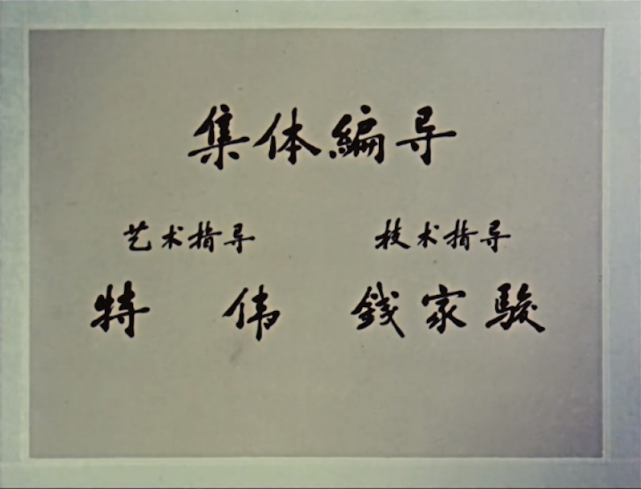 集体編导
艺术指导 技术指导
特 伟 錢家駿